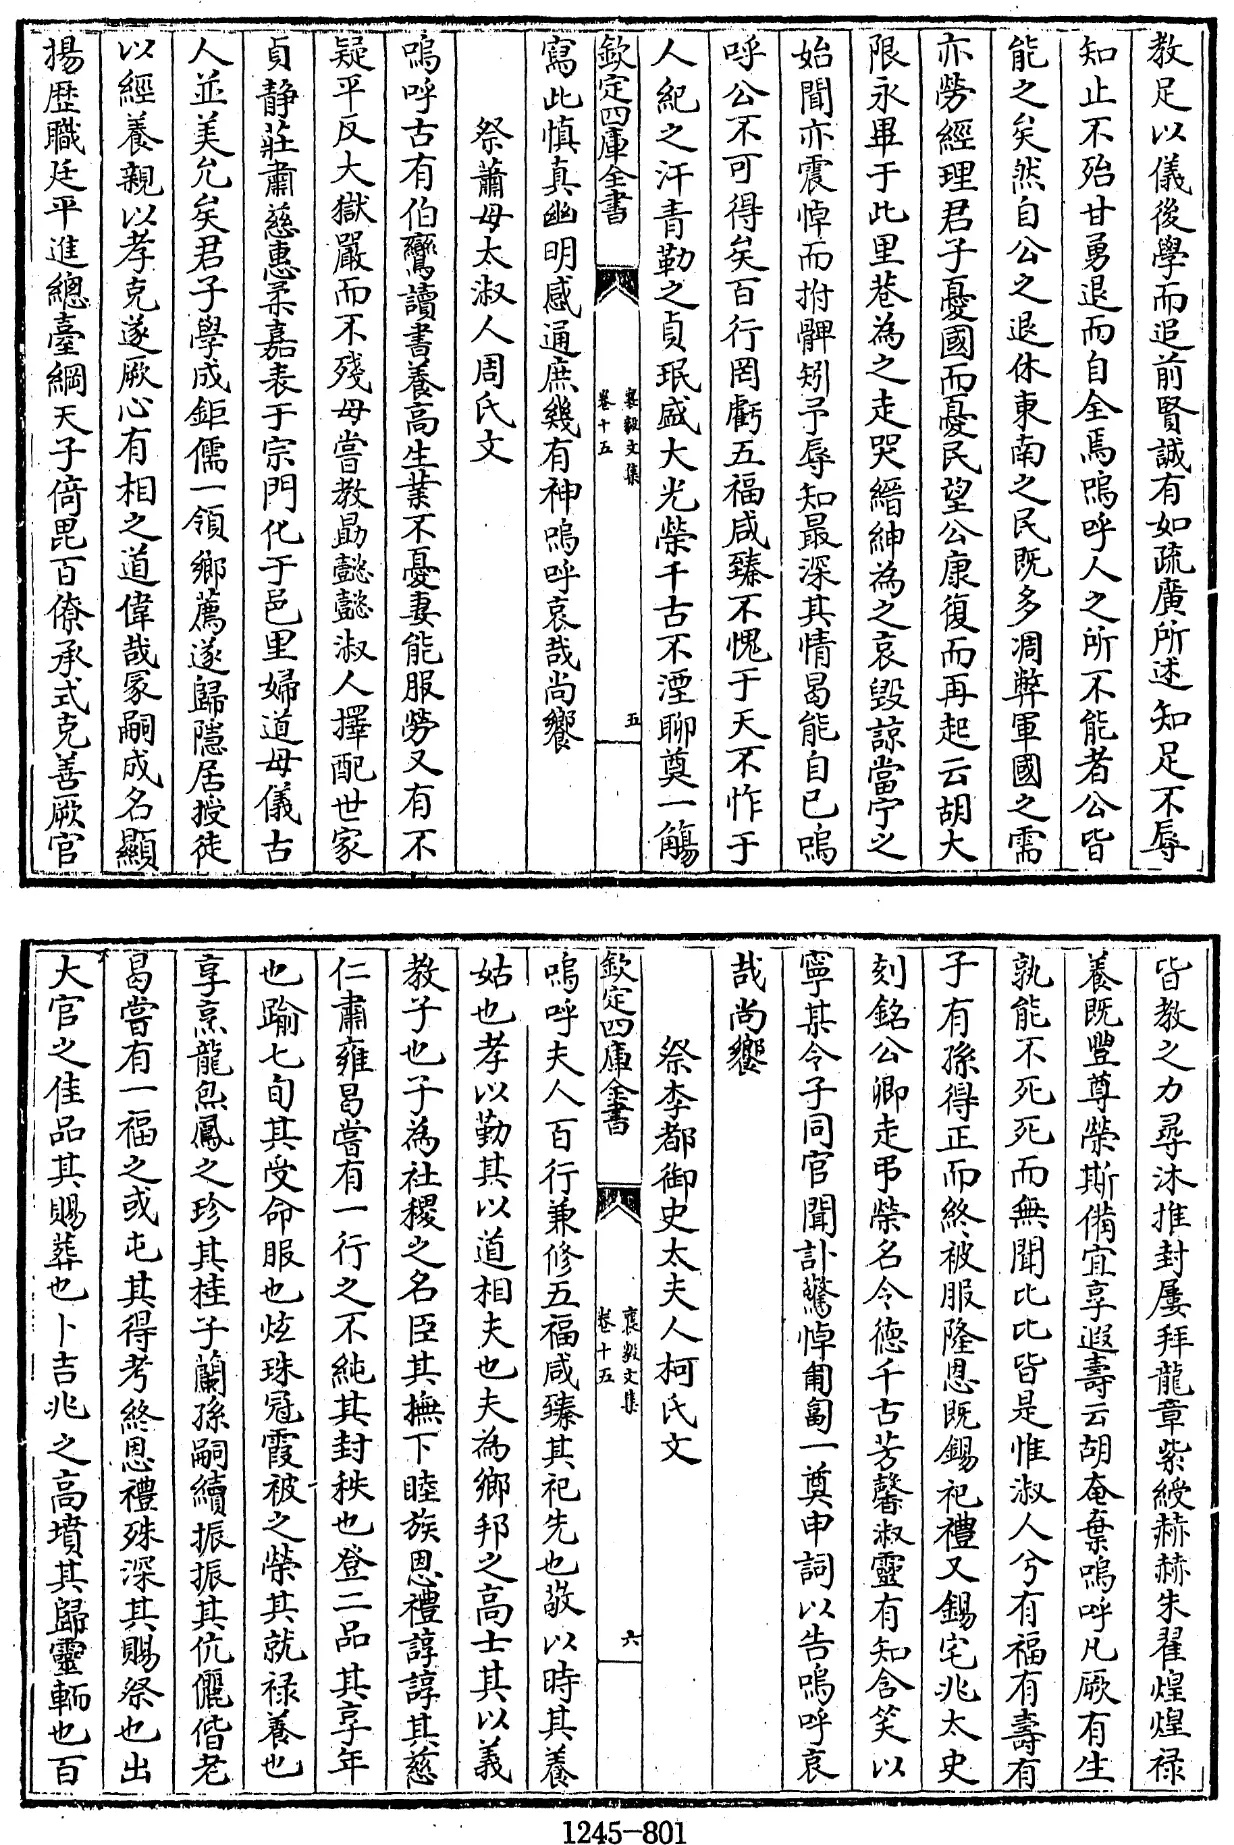 教足以儀後學而追前賢誠有如疏廣所述知足不辱
知止不殆甘勇退而自全焉嗚呼人之所不能者公皆
能之矣然自公之退休東南之民既多凋弊軍國之需
亦勞經理君子憂國而憂民望公康復而再起云胡大
限永畢于此里巷為之走哭縉紳為之哀毀諒當宁之
始聞亦震悼而拊髀矧予辱知最深其情曷能自已嗚
呼公不可得矣百行罔虧五福咸臻不愧于天不怍于
人紀之汗青勒之貞珉盛大光榮千古不湮聊奠一觴
欽定四庫全書 襄毅文集 卷十五 五
寫此慎真幽明感通庶幾有神嗚呼哀哉尚饗
祭蕭母太淑人周氏文
嗚呼古有伯鸞讀書養高生業不憂妻能服勞又有不
疑平反大獄嚴而不殘母嘗教勗懿懿淑人擇配世家
貞静莊肅慈惠柔嘉表于宗門化于邑里婦道母儀古
人並美允矣君子學成鉅儒一領鄉薦遂歸隱居授徒
以經養親以孝克遂厥心有相之道偉哉冢嗣成名顯
揚歷職廷平進總臺綱天子倚毘百僚承式克善厥官
皆教之力尋沐推封屢拜龍章紫綬赫赫朱翟煌煌禄
養既豐尊榮斯備宜享遐壽云胡奄棄嗚呼凡厥有生
孰能不死死而無聞比比皆是惟淑人兮有福有壽有
子有孫得正而終被服隆恩既錫祀禮又錫宅兆太史
刻銘公卿走弔榮名令德千古芳馨淑靈有知含笑以
寧某令子同官聞訃驚悼匍匐一奠申詞以告嗚呼哀
哉尚饗
祭李都御史太夫人柯氏文
欽定四庫全書 襄毅文集 卷十五 六
嗚呼夫人百行兼修五福咸臻其祀先也敬以時其養
姑也孝以勤其以道相夫也夫為鄉邦之高士其以義
教子也子為社稷之名臣其撫下睦族恩禮諄諄其慈
仁肅雍曷嘗有一行之不純其封秩也登二品其享年
也踰七旬其受命服也炫珠冠霞被之榮其就禄養也
享烹龍炰鳳之珍其桂子蘭孫嗣續振振其伉儷偕老
曷嘗有一福之或屯其得考終恩禮殊深其賜祭也出
大官之佳品其賜葬也卜吉兆之高墳其歸靈輀也百
1245-801